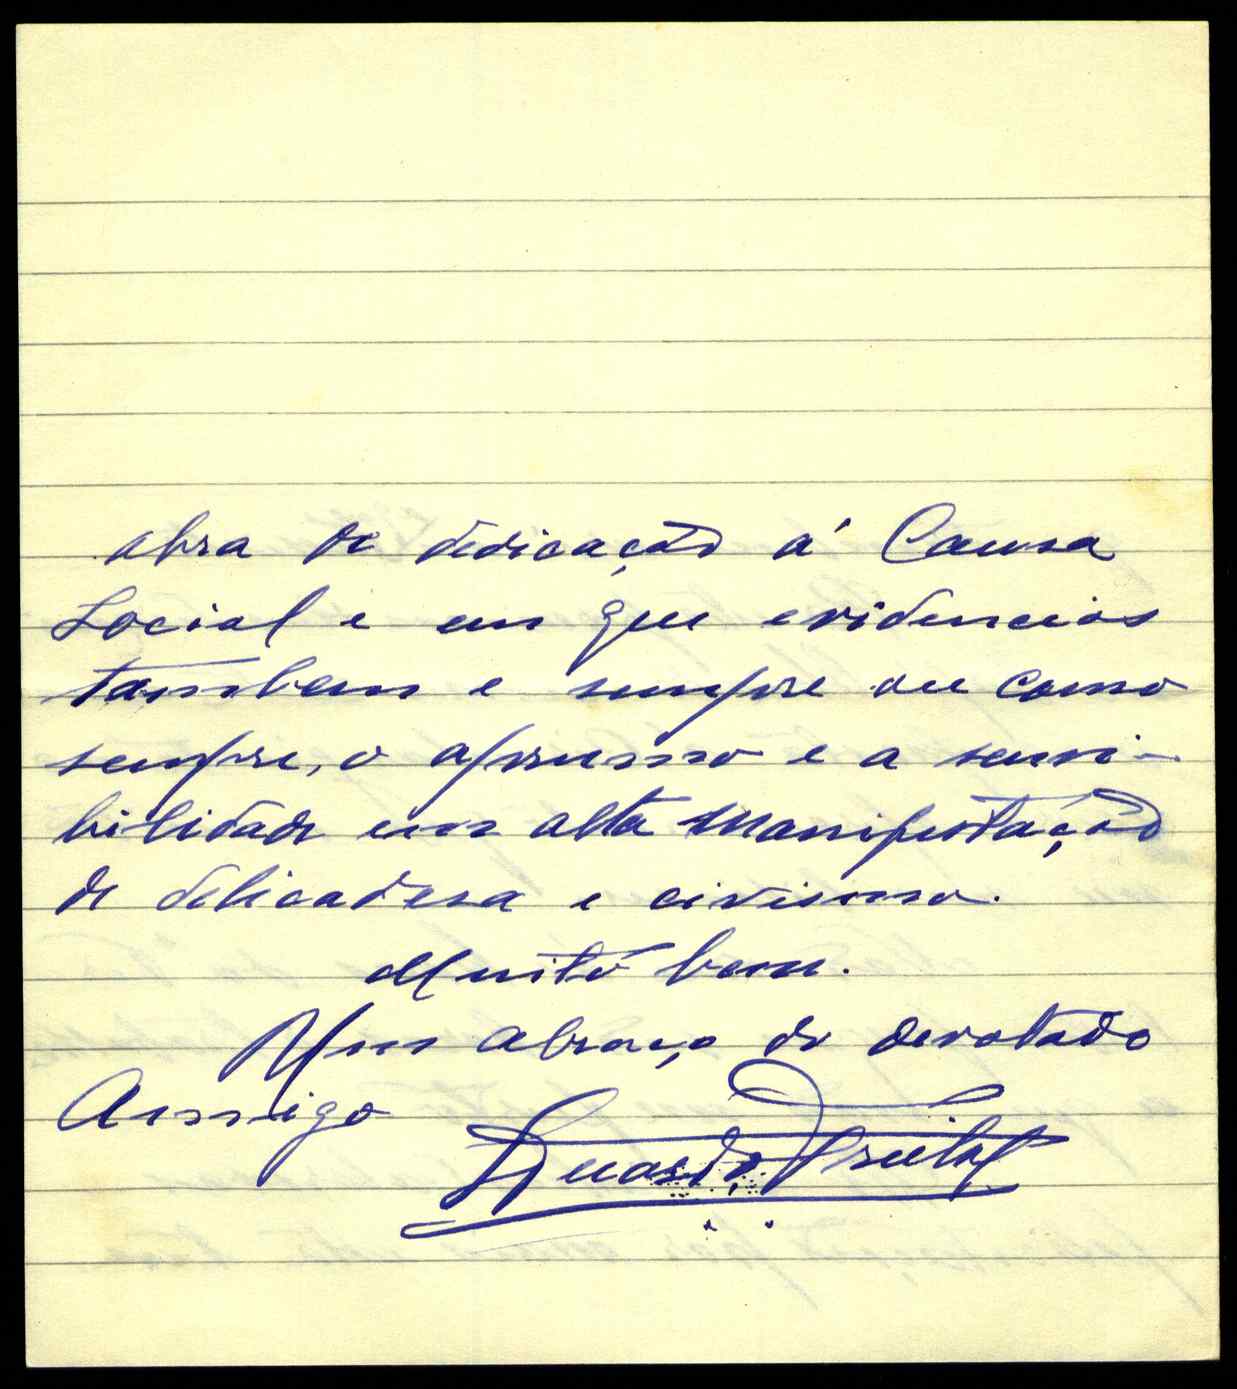 obra de dedicação á Causa
Social e em que evidencias
tambem e sempre ou como
sempre, o apreusso e a sensi-
bilidade em alta manifestação
de delicadesa e civismo.
Muito bem.
Um abraço do devotado
Amigo
Eduardo Freitas